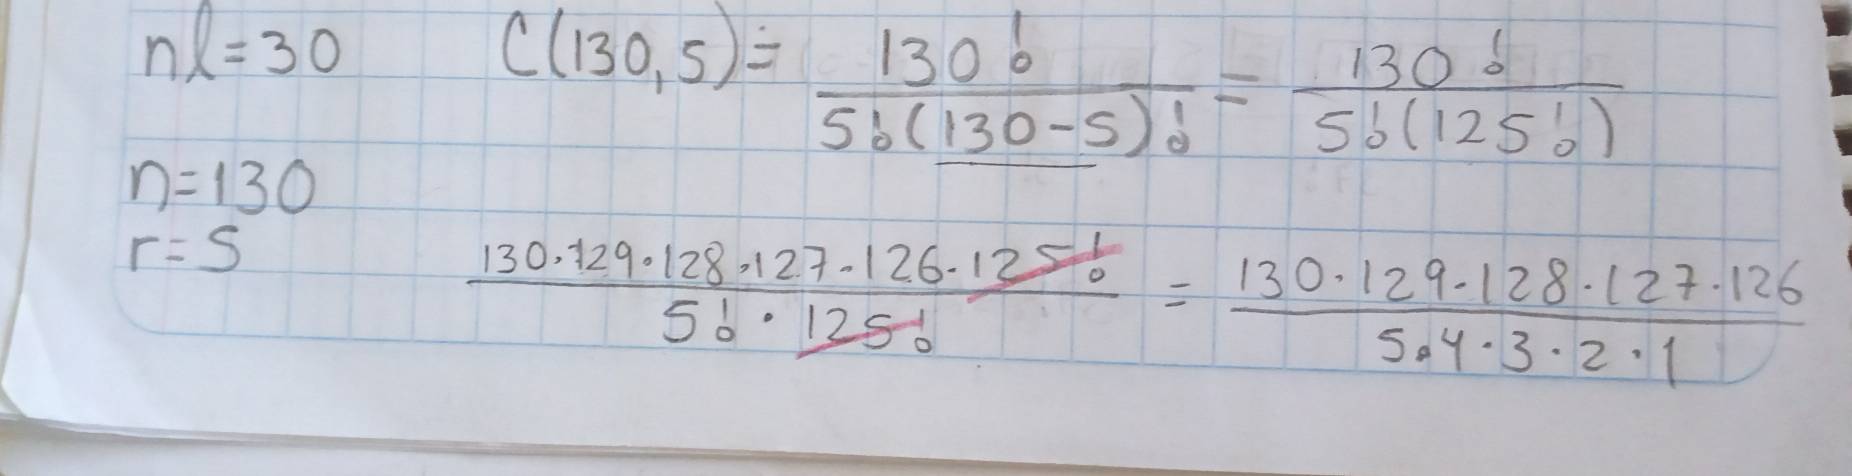 nl=30 C(130,5)= 130! / 5!(130-5)! = 130! / 5!(125!)
n=130
r=5 130·129·128·127·126·125! / 5!·125! = 130·129·128·127·126 / 5·4·3·2·1